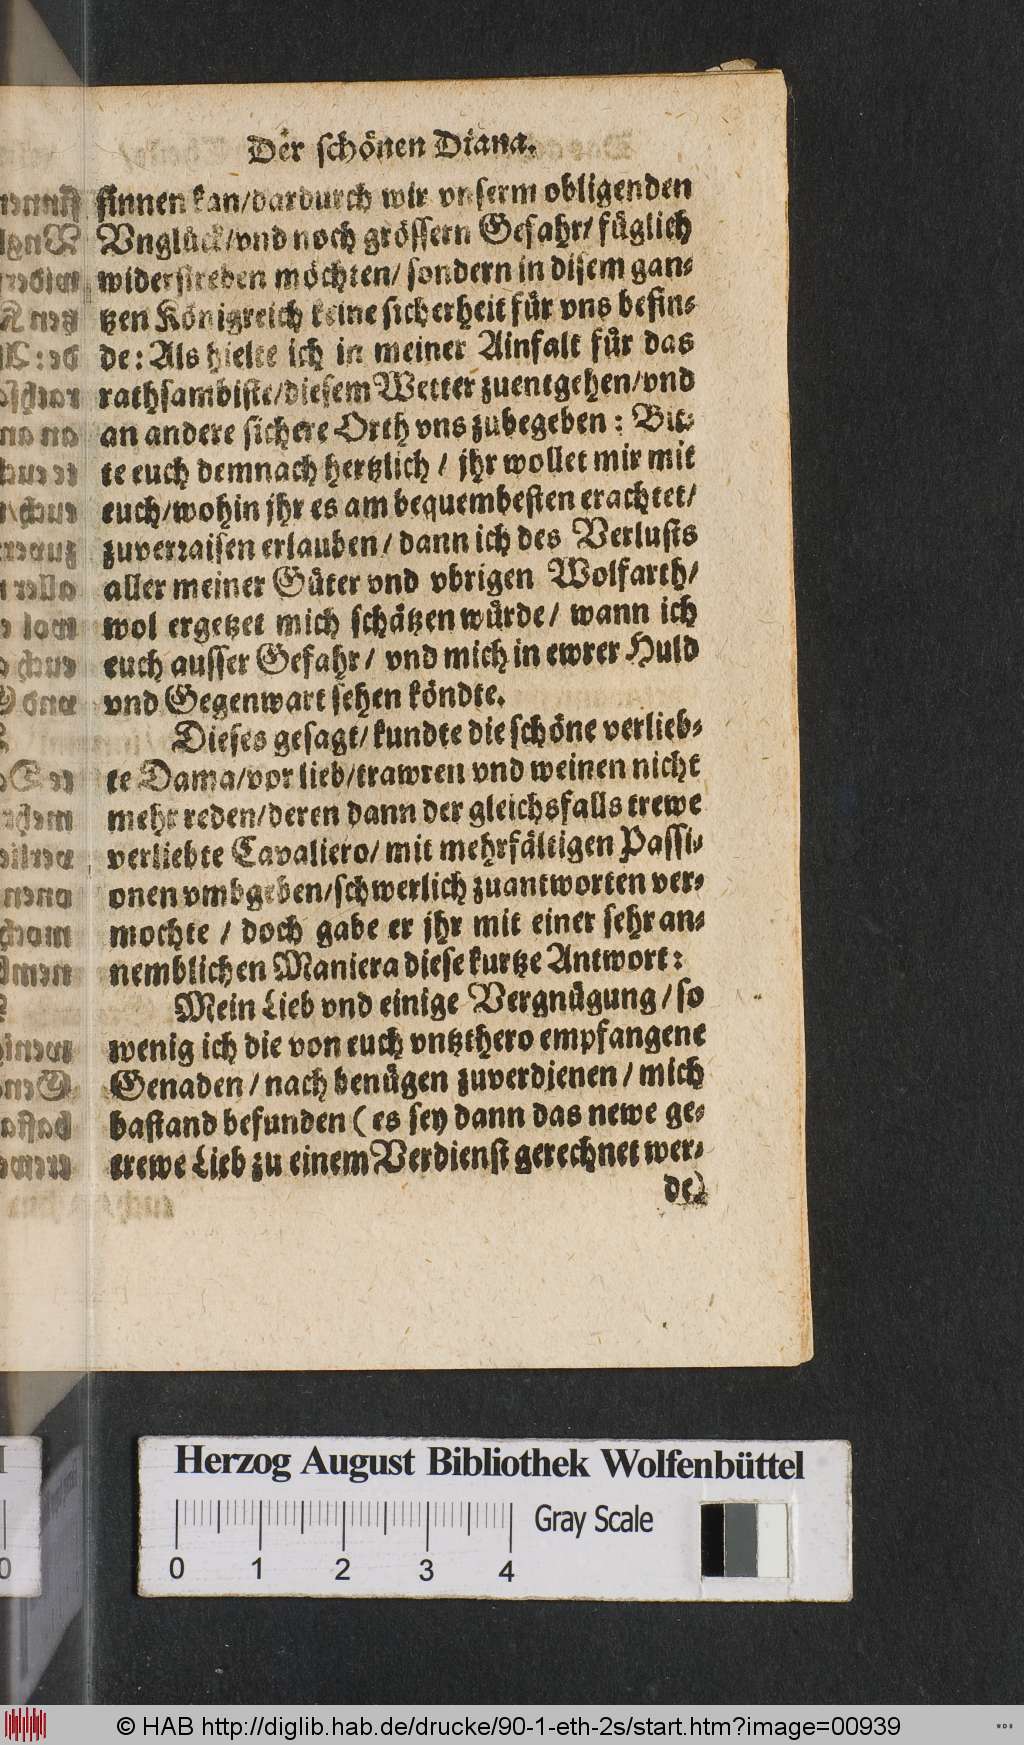 Der schönen Diana.
sinnen kan/dardurch wir vnserm obligenden
Vnglück/vnd noch grössern Gefahr/ füglich
widerstreben möchten/ sondern in disem gan-
tzen Königreich keine sicherheit für vns befin-
de: Als hielte ich in meiner Ainfalt für das
rathsambiste/diesem Wetter zuentgehen/vnd
an andere sichere Orth vns zubegeben: Bit-
te euch demnach hertzlich / jhr wollet mir mit
euch/wohin jhr es am bequembesten erachtet/
zuverraisen erlauben/ dann ich des Verlusts
aller meiner Güter vnd vbrigen Wolfarth/
wol ergetzet mich schätzen würde/ wann ich
euch ausser Gefahr/ vnd mich in ewrer Huld
vnd Gegenwart sehen köndte.
Dieses gesagt/ kundte die schöne verlieb-
te Dama/vor lieb/trawren vnd weinen nicht
mehr reden/deren dann der gleichsfalls trewe
verliebte Cavaliero/ mit mehrfältigen Passi-
onen vmbgeben/schwerlich zuantworten ver-
mochte / doch gabe er jhr mit einer sehr an-
nemblichen Maniera diese kurtze Antwort:
Mein Lieb vnd einige Vergnügung/ so
wenig ich die von euch vntzthero empfangene
Genaden/ nach benügen zuverdienen/ mich
bastand befunden ( es sey dann das newe ge-
trewe Lieb zu einem Verdienst gerechnet wer-
de)
Herzog August Bibliothek Wolfenbüttel
Gray Scale
0 1 2 3 4
© HAB http://diglib.hab.de/drucke/90-1-eth-2s/start.htm?image=00939